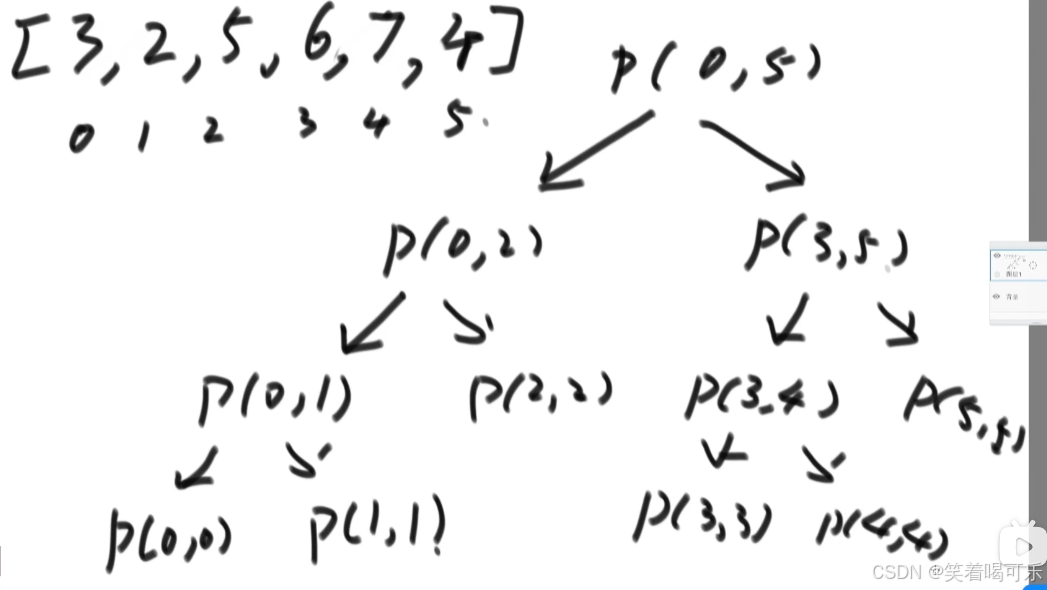 [3,2,5,6,7,4]
0 1 2 3 4 5
p(0,5)
p(0,2) p(3,5)
p(0,1) p(2,2) p(3,4) p(5,5)
p(0,0) p(1,1) p(3,3) p(4,4)
图层1
背景
CSDN @笑着喝可乐